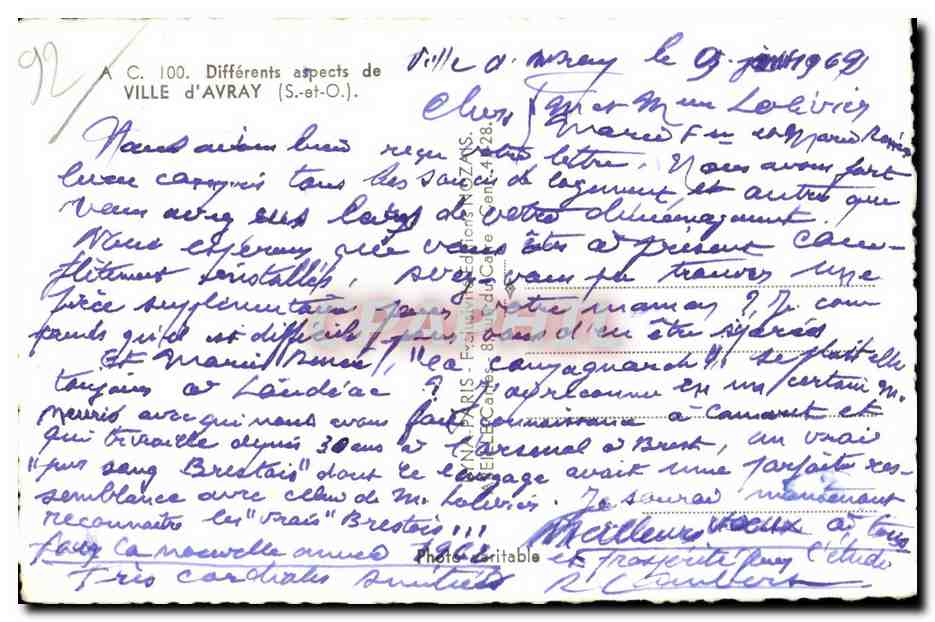 92
A C. 100. Différents aspects de
VILLE d'AVRAY (S.-et-O.).
Ville d'Avray le 9 1962
Chers M et Mme Lolivier
Marie
Nous avions bien reçu votre lettre. Nous avons fort
bien compris tous les soucis de logement et autres que
vous avez eus lors de votre déménagement.
Nous espérons que vous êtes à présent com-
plètement installés, avez vous pu trouver une
pièce supplémentaire pour votre maman ? Je com-
prends qu'il est difficile pour vous d'en être séparés
Et Marie "la campagnarde" se plait elle
toujours à Loudéac ? J'ai reconnu en un certain M.
Meuric avec qui nous avons fait connaissance à Camaret et
qui travaille depuis 30 ans à l'arsenal à Brest, un vrai
"pur sang Brestois" dont le langage avait une parfaite res-
semblance avec celui de M. Lolivier. Je saurai maintenant
reconnaître les "vrais" Brestois !!!
Meilleurs voeux à tous
pour la nouvelle année 1962 et prospérité pour l'étude
Très cordiales amitiés
R Lambert
LYNA-PARIS - Exclusivité Editions NOZAIS.
Photo véritable